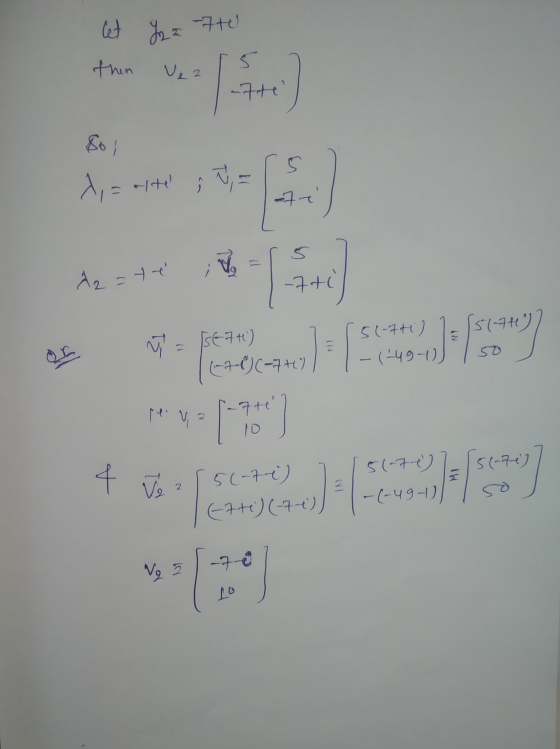 let y₂ = -7+i
then v₂ = [5; -7+i]
So;
λ₁ = -1+i ; v⃗₁ = [5; -7-i]
λ₂ = -1-i ; v⃗₂ = [5; -7+i]
or v⃗₁ = [5(-7+i); (-7-i)(-7+i)] ≡ [5(-7+i); -(-49-1)] ≡ [5(-7+i); 50]
v₁ = [-7+i; 10]
& v⃗₂ = [5(-7-i); (-7+i)(-7-i)] ≡ [5(-7-i); -(-49-1)] ≡ [5(-7-i); 50]
v₂ ≡ [-7-i; 10]